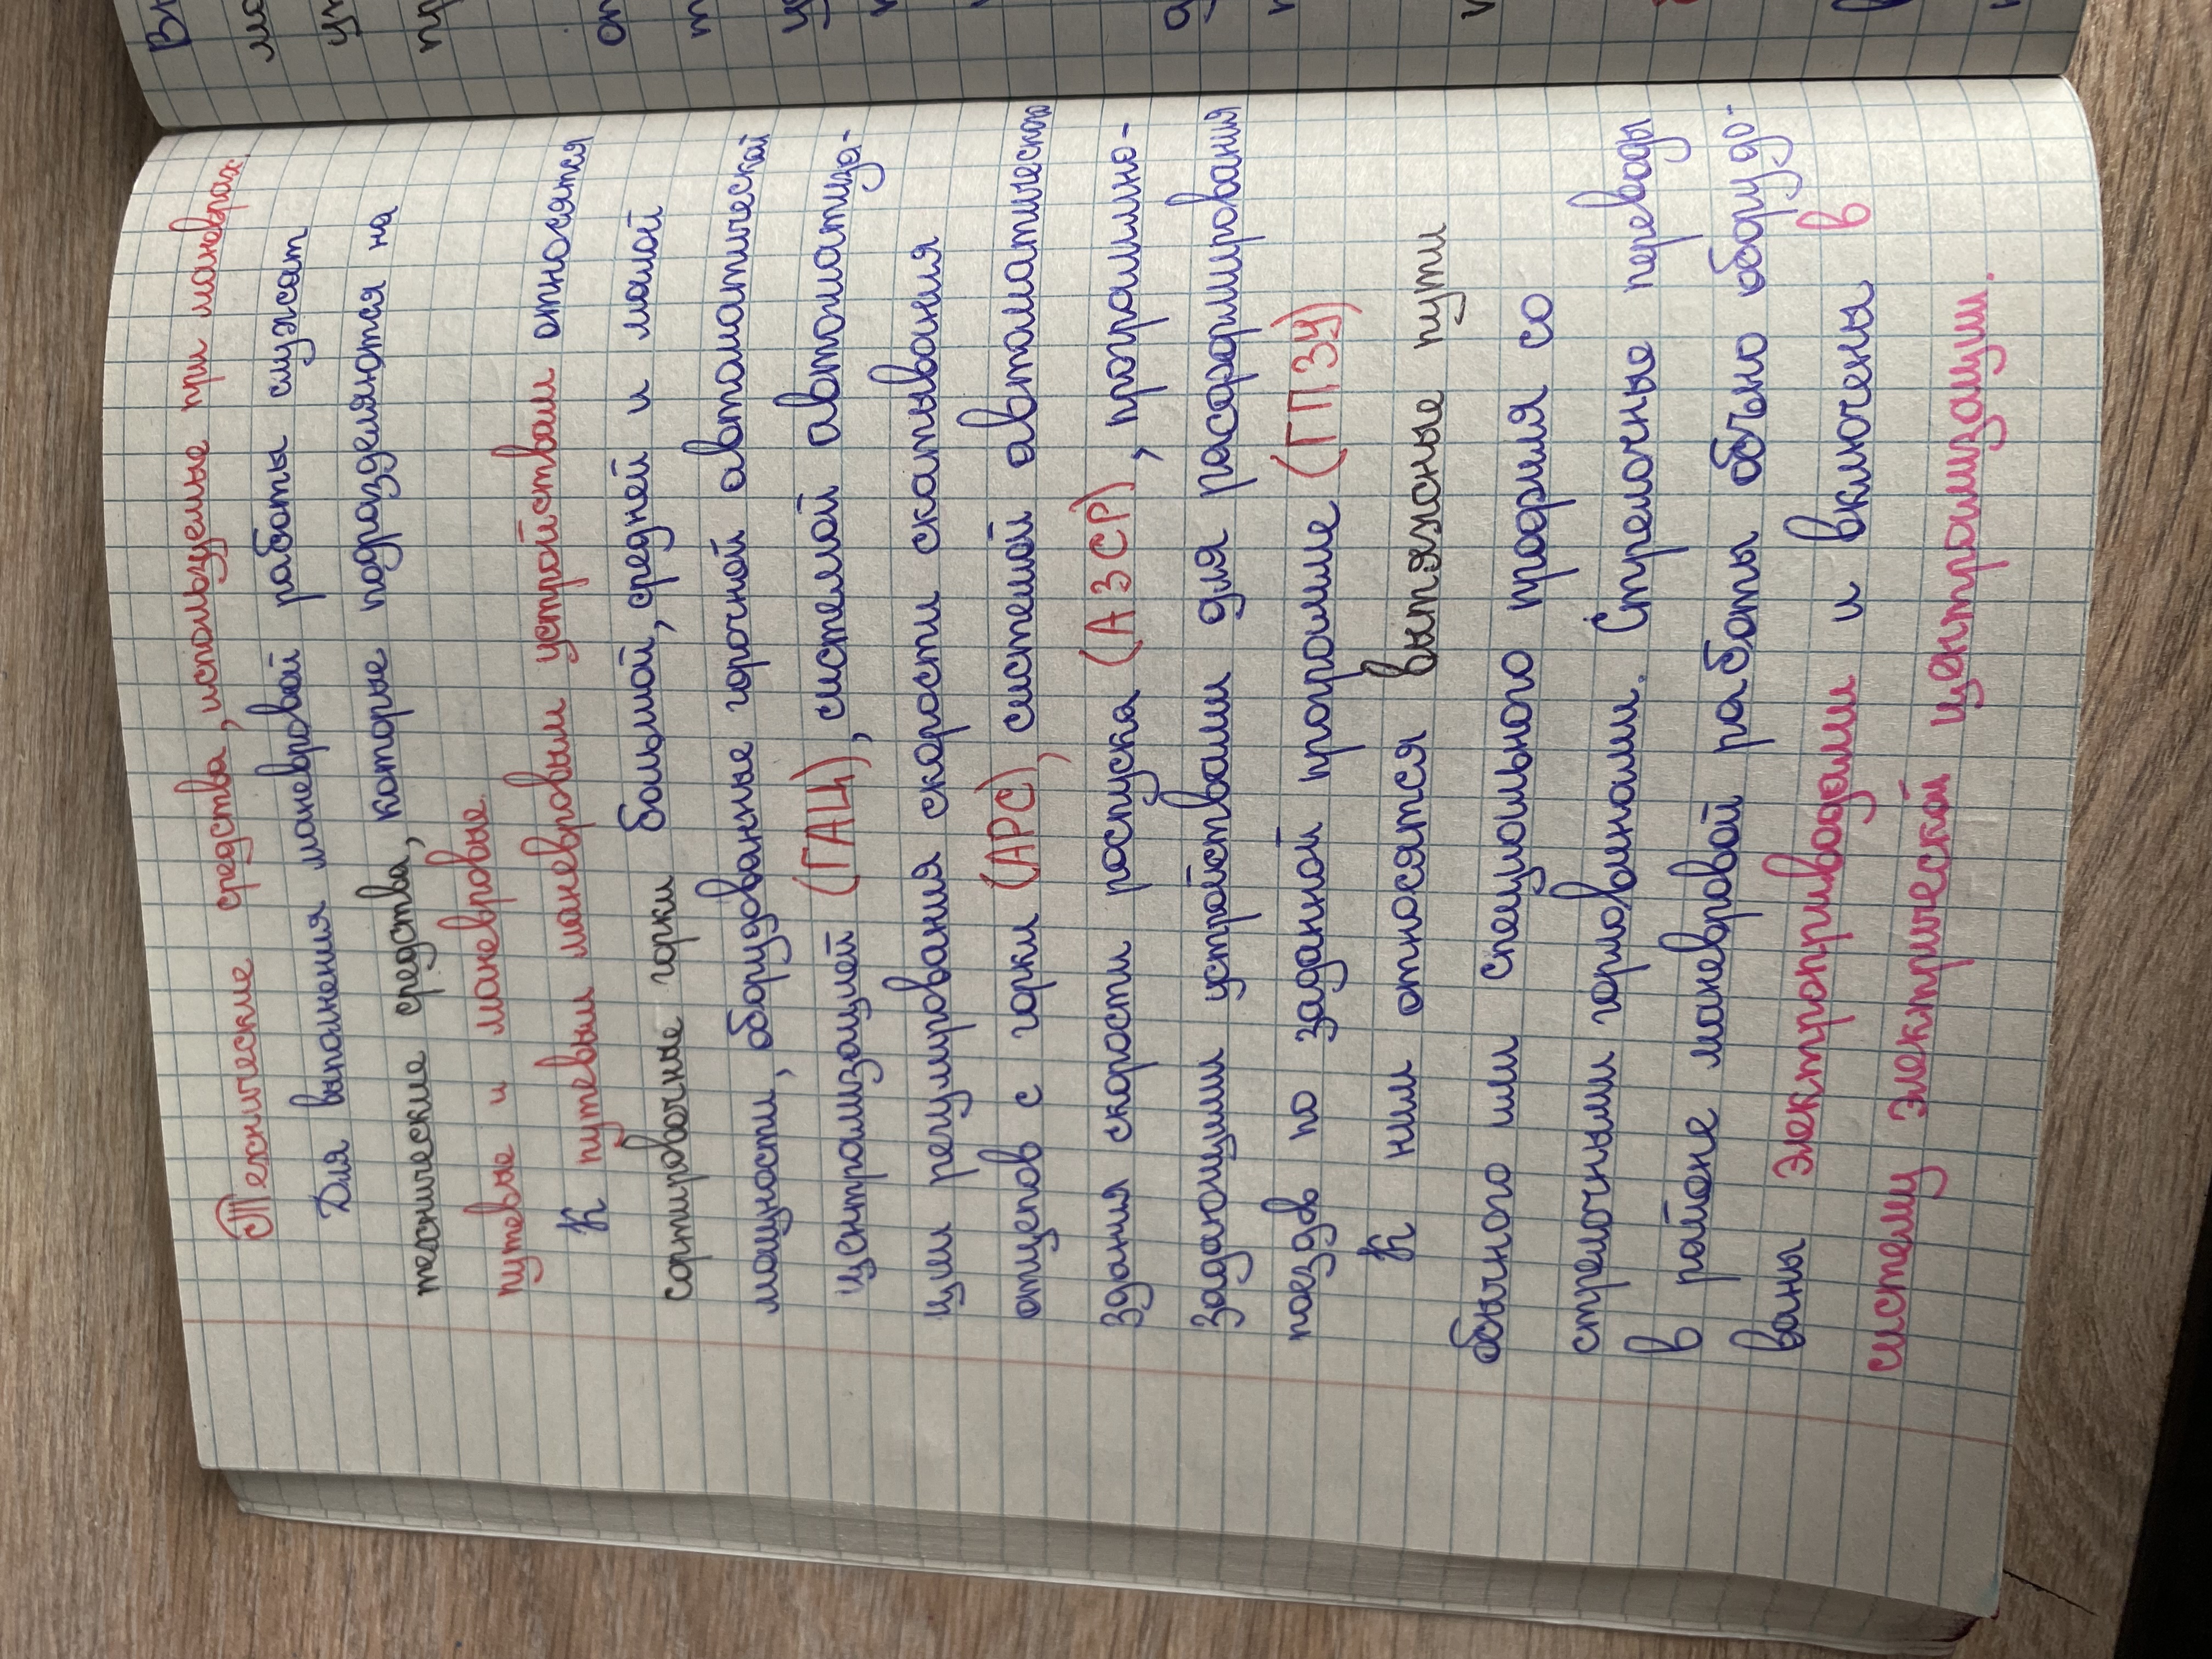 Технические средства, используемые при маневрах.
Для выполнения маневровой работы служат
технические средства, которые подразделяются на
путевые и маневровые.
К путевым маневровым устройствам относятся
сортировочные горки большой, средней и малой
мощности, оборудованные горочной автоматической
централизацией (ГАЦ), системой автоматиза-
ции регулирования скорости скатывания
отцепов с горки (АРС), системой автоматического
здания скорости роспуска (АЗСР), программно-
задающими устройствами для расформирования
поездов по заданной программе (ГПЗУ)
К ним относятся вытяжные пути
обычного или специального профиля со
стрелочными горловинами. Стрелочные переводы
в районе маневровой работы обычно оборудо-
ваны электроприводами и включены в
систему электрической централизации.